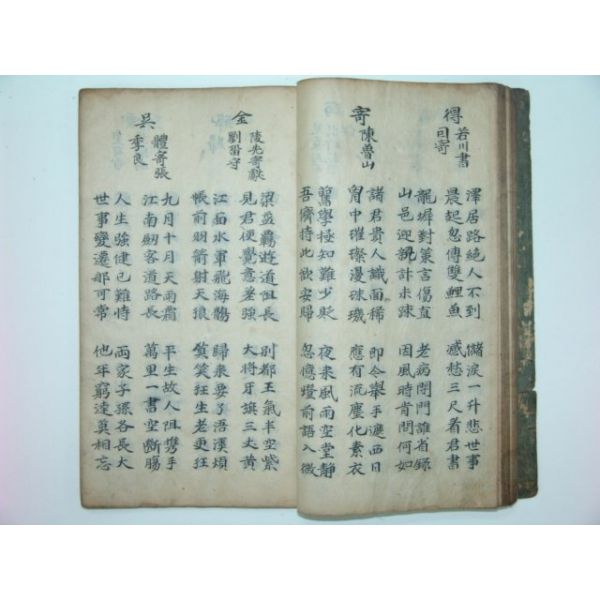 得若川書
因寄
澤居路絶人不到 儲淚一升悲世事
晨起忽傳雙鯉魚 感愁三尺看君書
龍墀對策言傷直 老病閉門誰省錄
山邑迎親計未疎 因風時肯問何如
寄陳魯山
諸君貴人識面稀 即今擧手遮西日
胷中璀璨漫珠璣 應有流塵化素衣
學極知難少貶 夜來風雨空堂靜
吾儕持此欲安歸 忽憶燈前語入微
金陵先寄獻
劉留守
梁益羈遊道阻長 別都王氣半空紫
見君便覺意差強 大將牙旗三丈黃
江面水軍飛海鶻 歸來要了浯溪頌
帳前羽箭射天狼 莫笑狂生老更狂
吳體寄張
季良
九月十月天雨霜 平生故人阻携手
江南劒客道路長 萬里一書空斷膓
人生強健已難恃 兩家子孫各長大
世事變遷那可常 他年窮達莫相忘